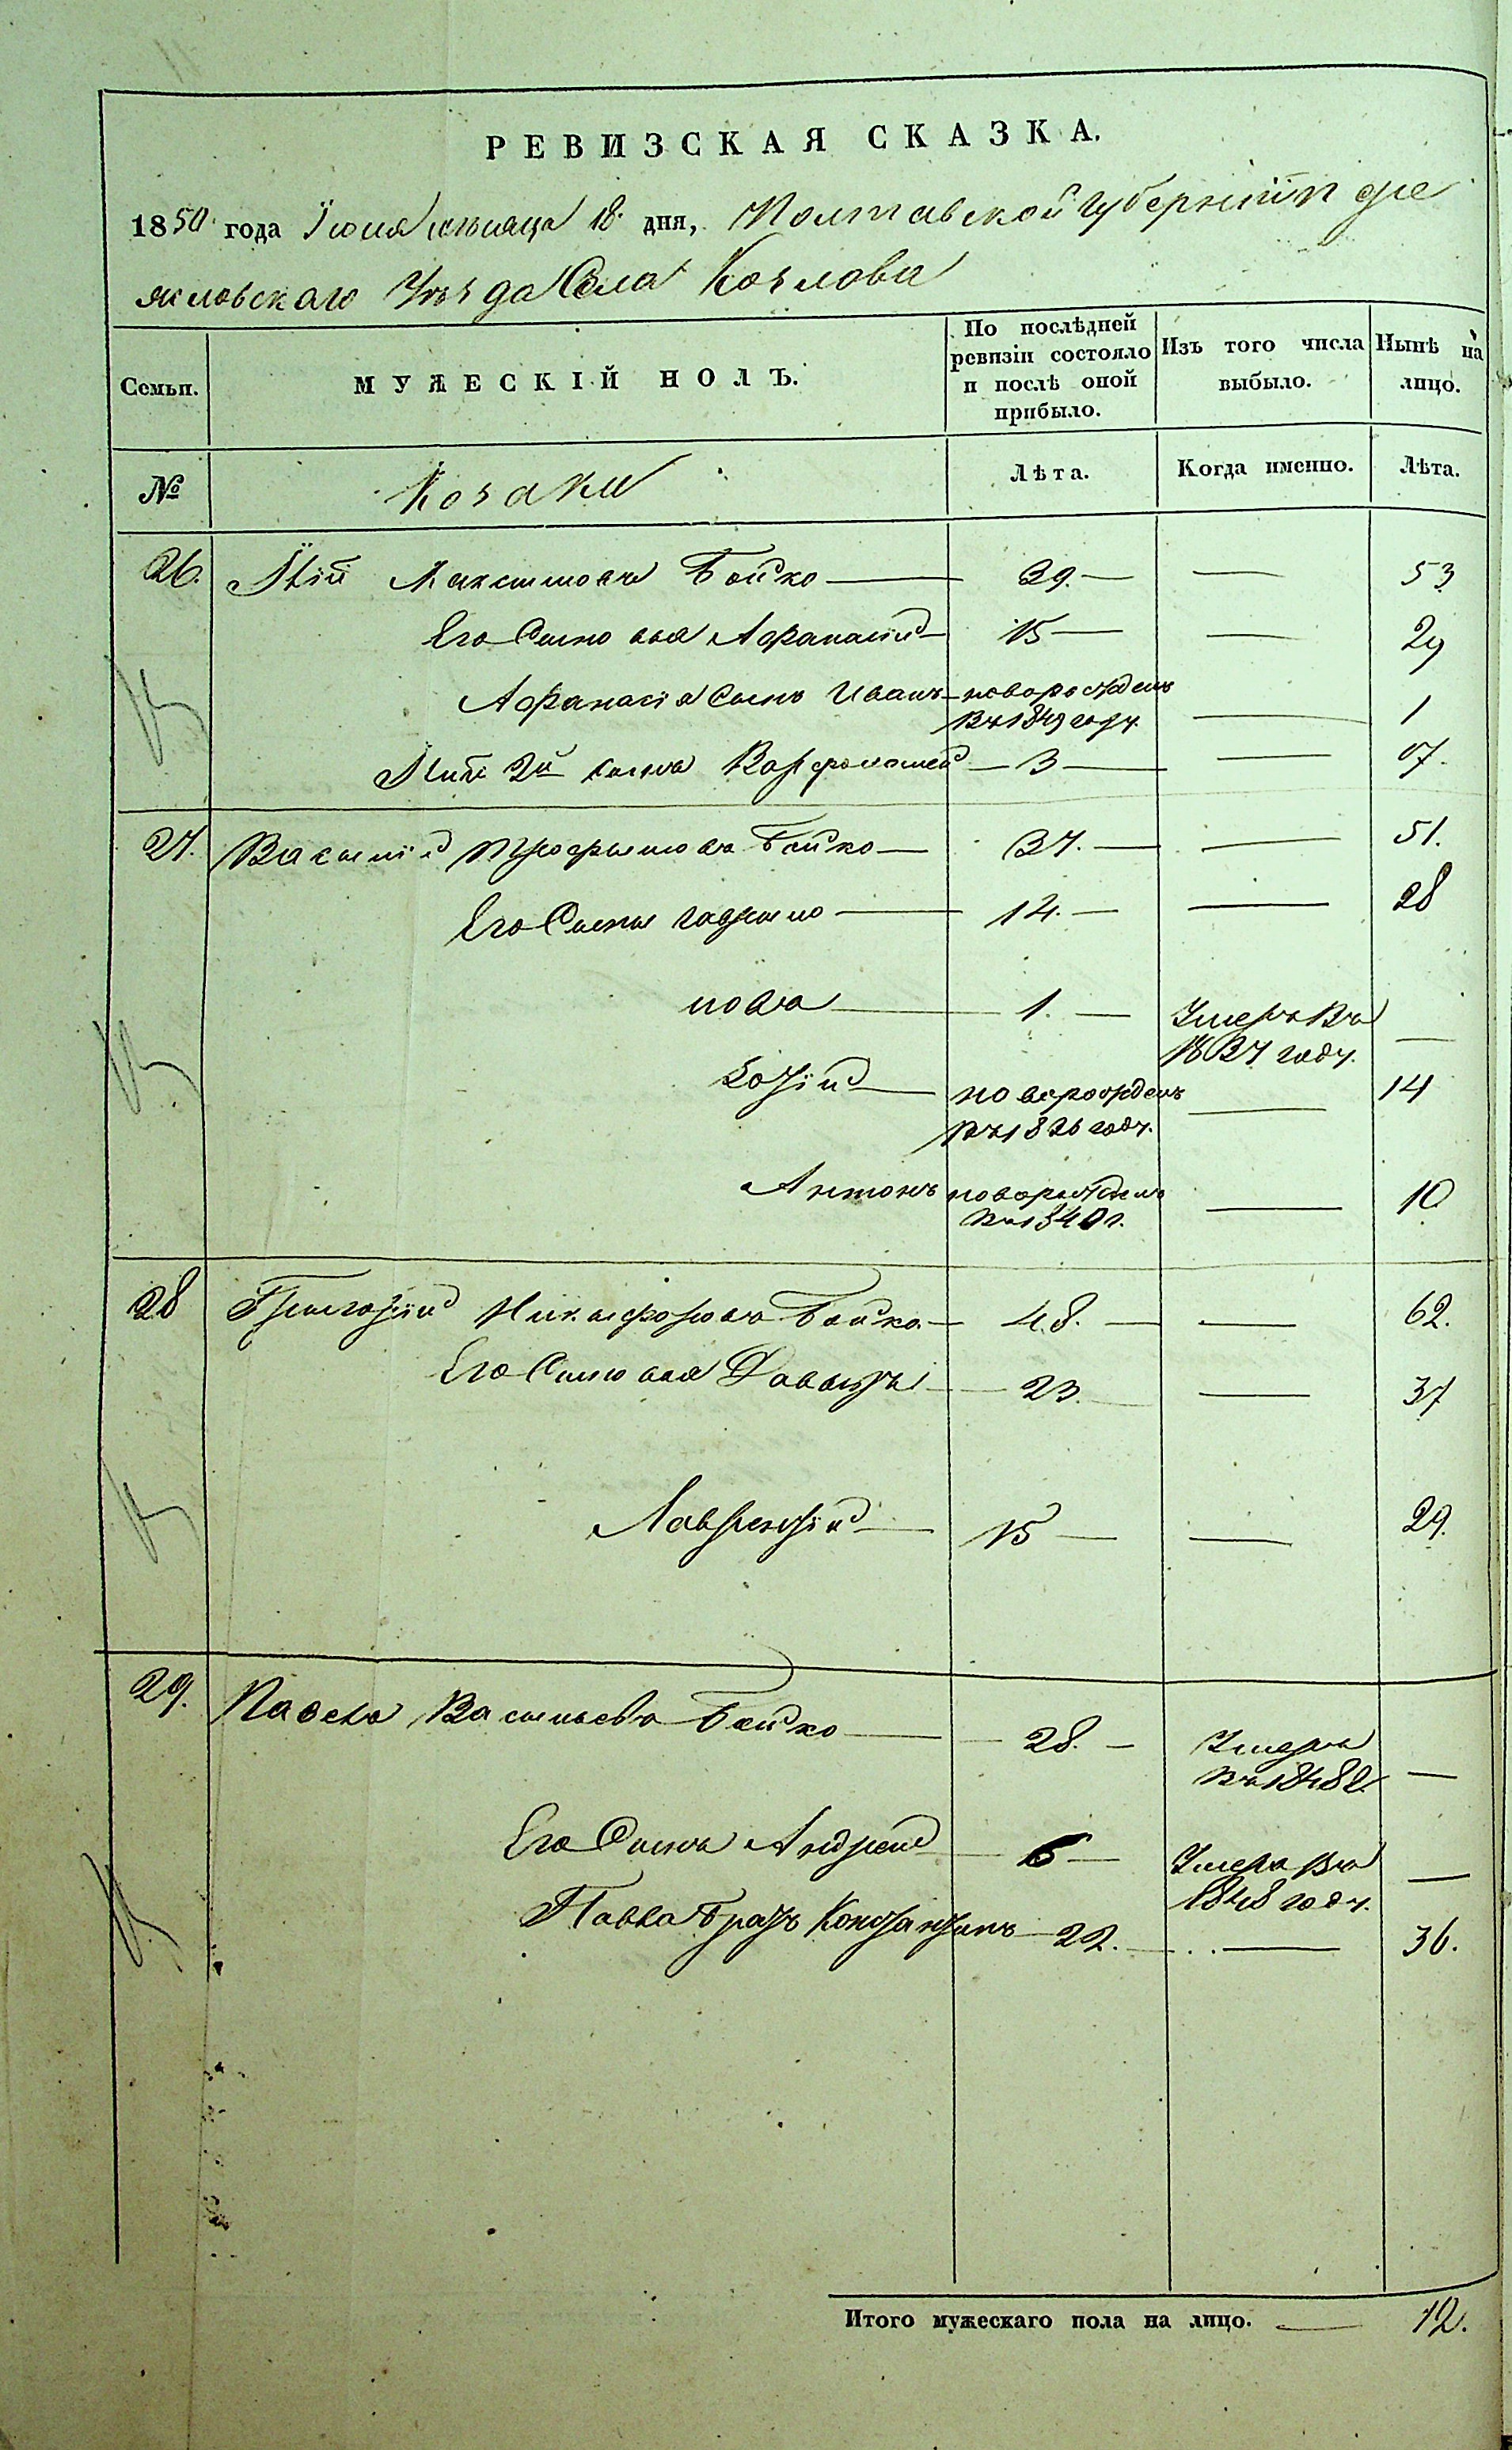 РЕВИЗСКАЯ СКАЗКА.
1850 года Іюня мѣсяца 18 дня, Полтавской губерніи Пере
яславскаго Уѣзда Села Козлова
Семьи.
МУЖЕСКІЙ ПОЛЪ.
По послѣдней ревизіи состояло и послѣ оной прибыло.
Изъ того числа выбыло.
Нынѣ на лицо.
№
Козаки
Лѣта.
Когда именно.
Лѣта.
26. Максимовъ Бойко — 39. — — 53
Его Сыновья Афанасій — 15 — — 29
Афанасія Сынъ Иванъ — новорожденъ въ 1849 году. — 1
2й сынъ Варфоломей — 3 — — 17.
27. Василій Трофимовъ Бойко — 37. — — 51.
Его Сыны — 14. — — 28
— 1. — Умеръ въ 1837 году. —
— новорожденъ въ 1836 году. — 14
Антонъ новорожденъ въ 1840 г. — 10
28 Григорій Никифоровъ Бойко — 48. — — 62.
Его Сыновья Давыдъ — 23. — 37
Лаврентій — 15 — — 29.
29. Павелъ Васильевъ Бойко — 28. — Умеръ въ 1848 г. —
Его Сынъ Андрей — 6 — Умеръ въ 1848 году. —
Павла братъ Константинъ — 22. — 36.
Итого мужескаго пола на лицо. — 12.